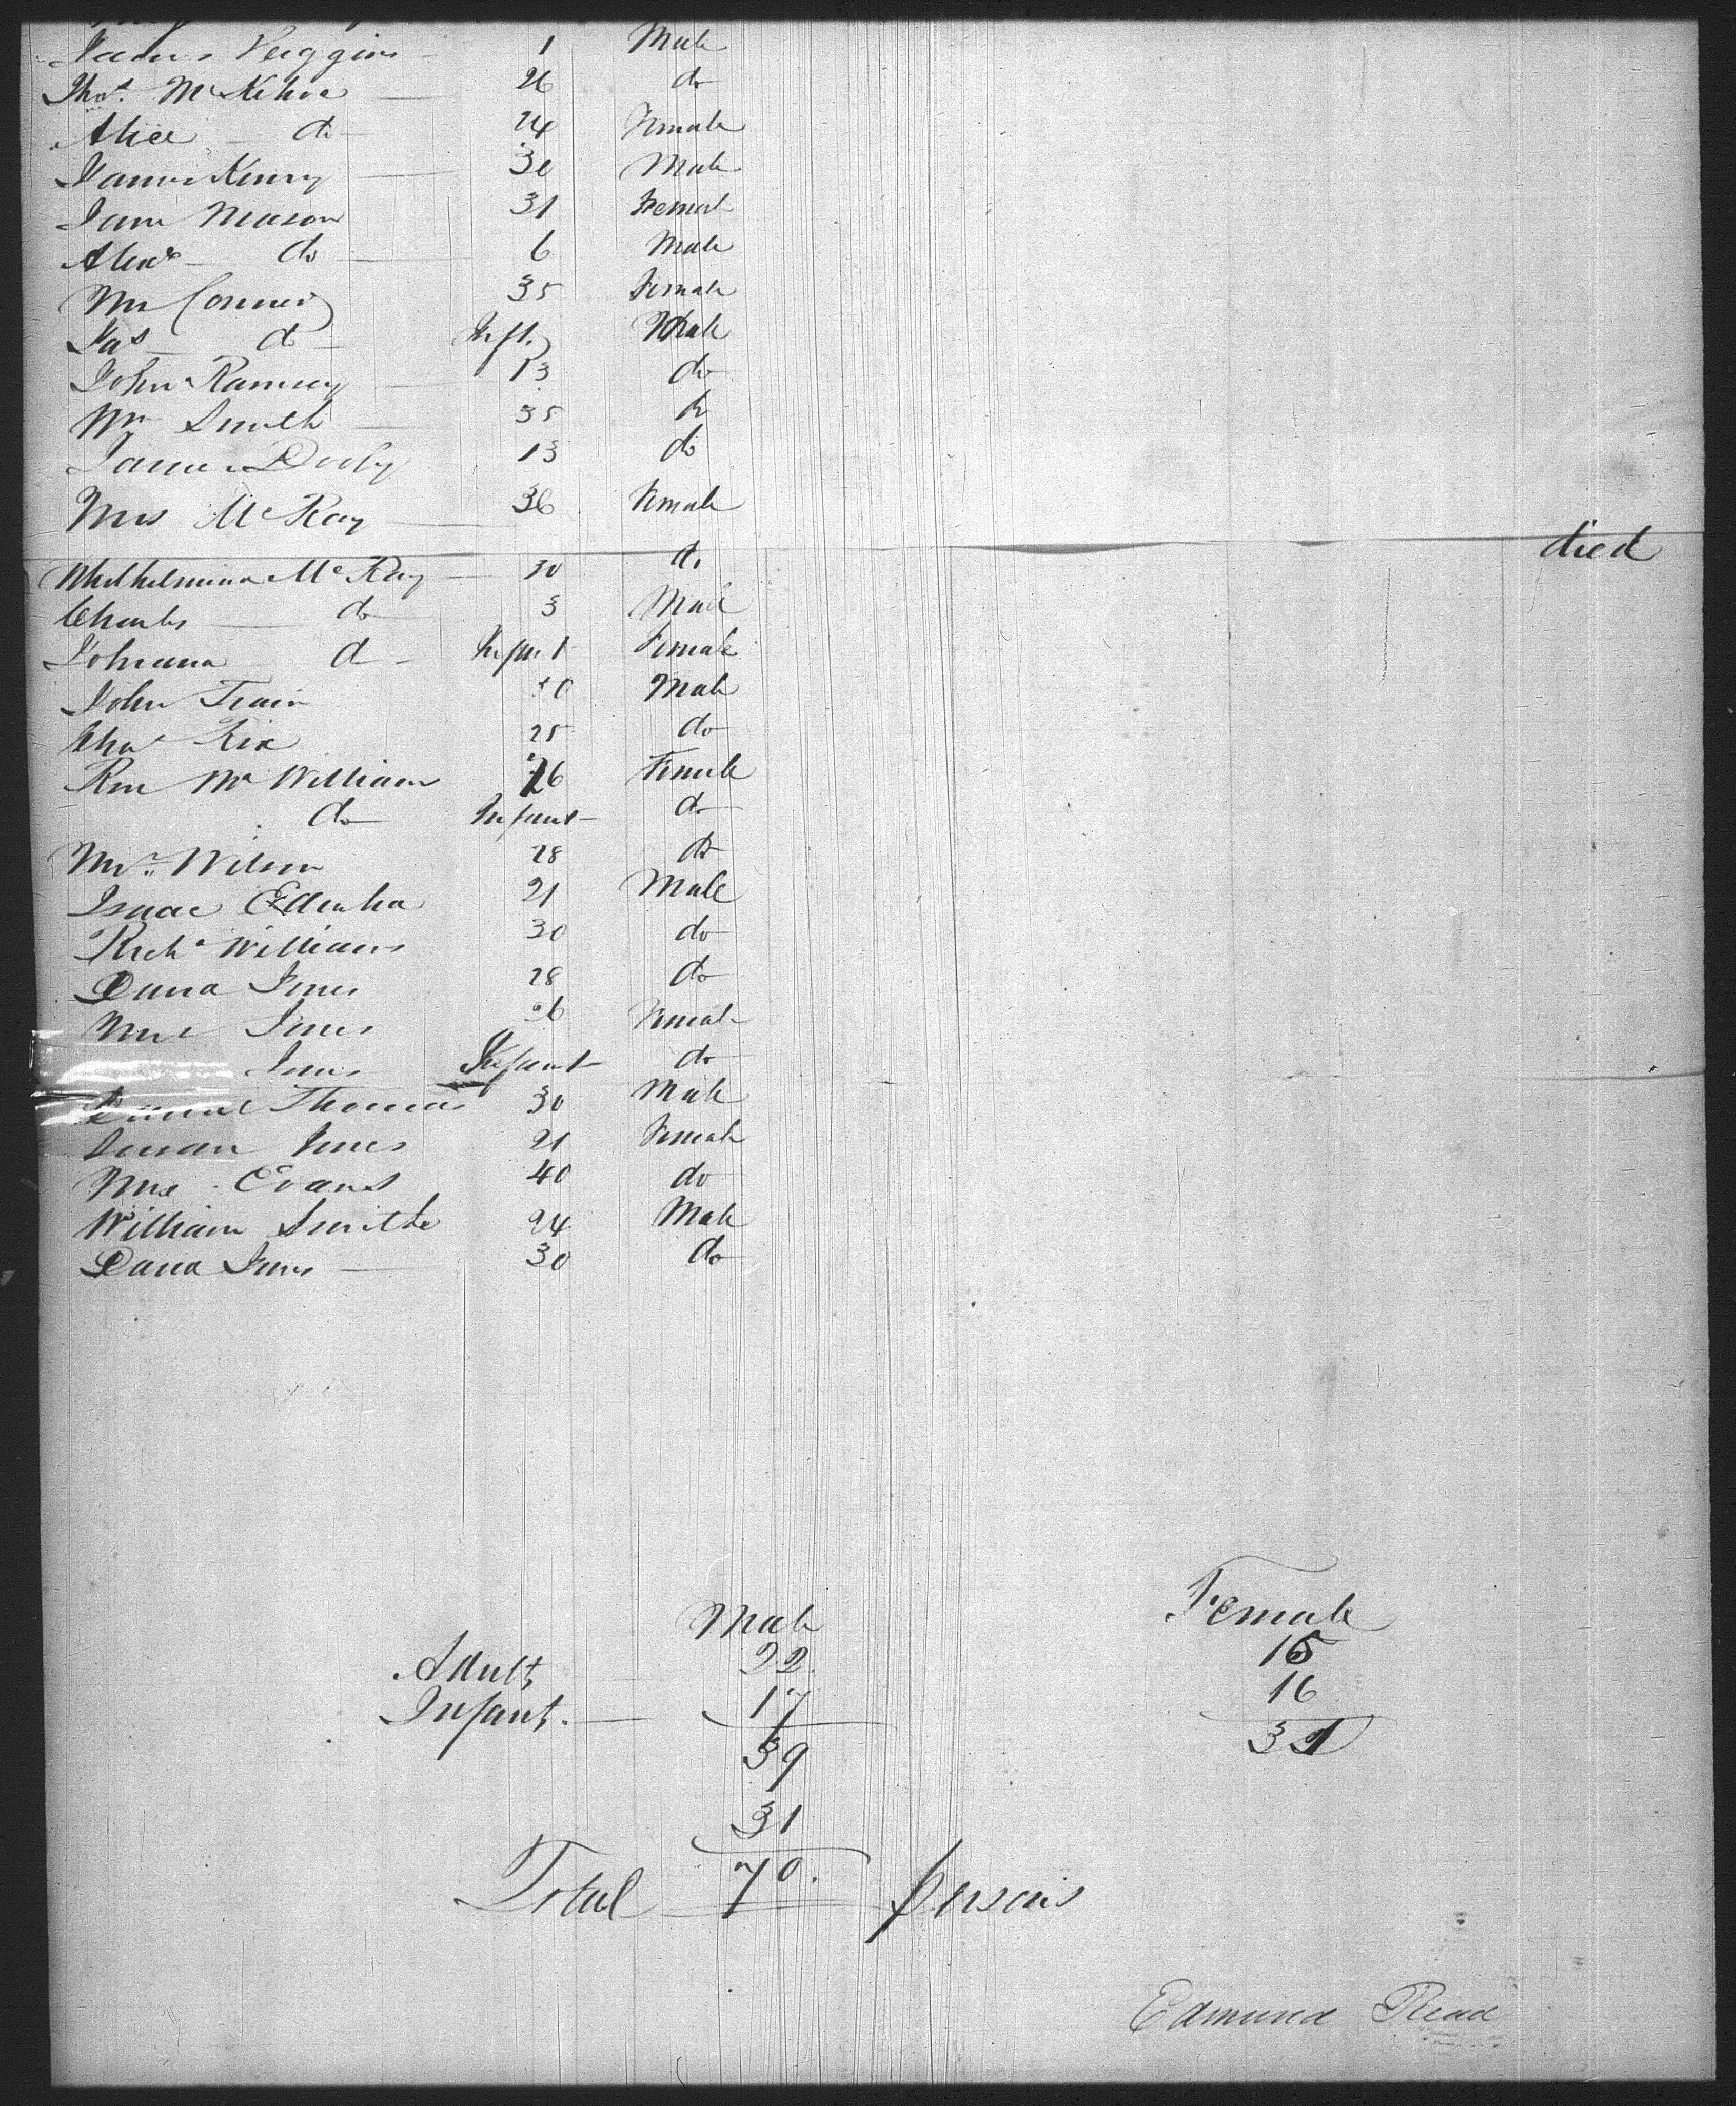 James Huggins 1 Male
Thos. McKehoe 26 do
Alice do 24 Female
James Kenry 30 Male
Jane Mason 31 Female
Alexr do 6 Male
Mrs Conner 35 Female
Jas do Inft. Male
John Ramsey 13 do
Wm Smith 35 do
James Dooby 13 do
Mrs McKay 36 Female
Whilhelmina McKay 30 do died
Charles do 3 Male
Johanna do Infant Female
John Train 30 Male
Chas Rix 25 do
Mc William 26 Female
do Infant do
Mrs. Wilson 28 do
Isaac 21 Male
Richd Williams 30 do
David Jones 28 do
Mrs Jones 26 Female
Jones Infant do
Daniel Thomas 30 Male
Susan Jones 21 Female
Mrs Evans 40 do
William Smith 24 Male
David Jones 30 do
Male Female
Adult 22 15
Infant. 17 16
39 31
31
Total 70. persons
Edmund Read